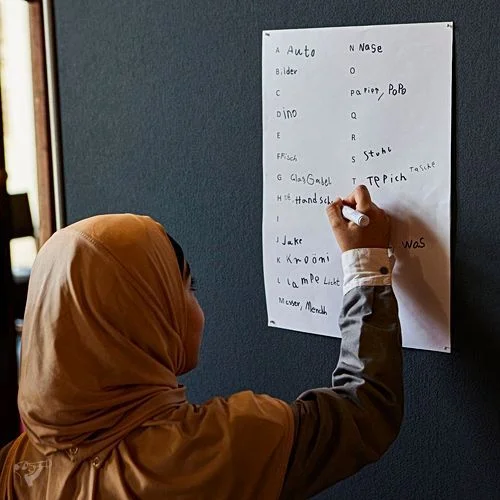 A Auto
Bilder
C
Dino
E
FFisch
G Glas Gabel
H
I
J Jake
K
L Lampe Licht
Messer, Mensch
N Nase
O
Papier, PoPo
Q
R
S Stuhl
T Teppich Tasche
was